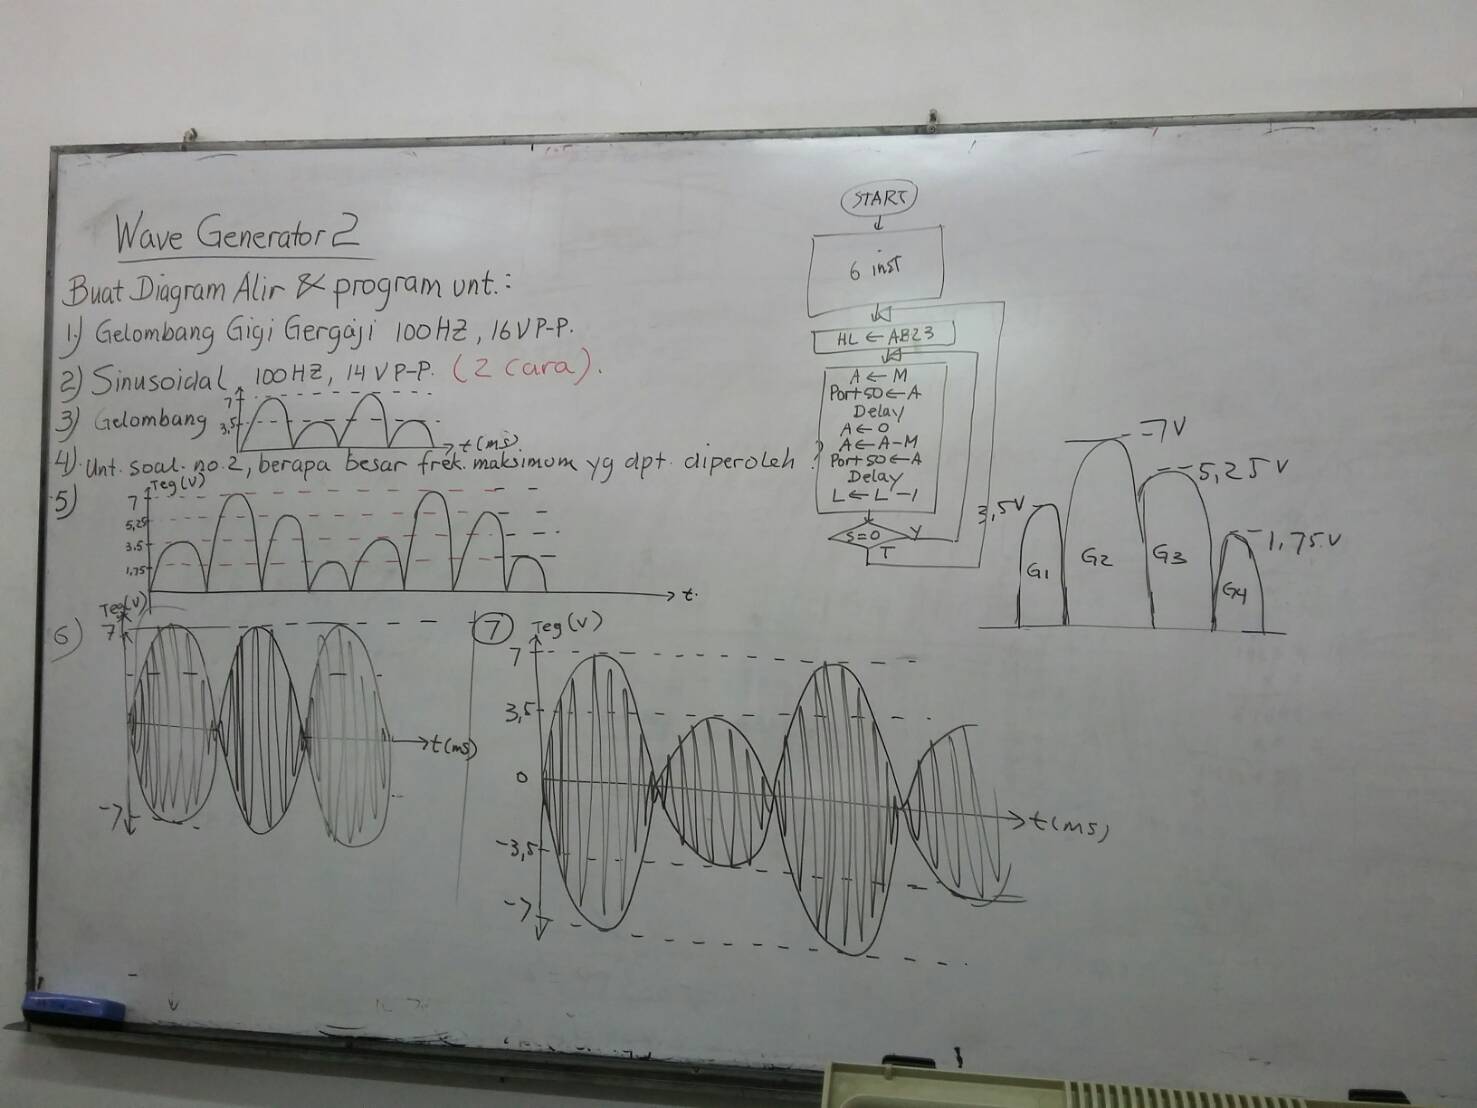 Wave Generator 2
Buat Diagram Alir & program unt.:
1) Gelombang Gigi Gergaji 100HZ, 16V P-P.
2) Sinusoidal, 100HZ, 14V P-P. (2 cara).
3) Gelombang
7
3,5
t(ms)
4) Unt. soal. no. 2, berapa besar frek. maksimum yg dpt. diperoleh ?
5)
Teg(V)
7
5,25
3,5
1,75
t.
6)
Teg(V)
7
-7
t(ms)
7
Teg(V)
7
3,5
0
-3,5
-7
t(ms)
START
6 inst
HL ← AB23
A ← M
Port50 ← A
Delay
A ← 0
A ← A-M
Port50 ← A
Delay
L ← L-1
S=0
Y
T
3,5V
7V
5,25V
1,75V
G1
G2
G3
G4